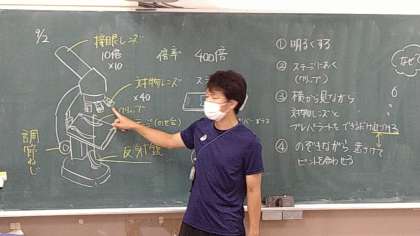 9/2
接眼レンズ
10倍
×10
倍率 400倍
対物レンズ
×40
クリップ
反射鏡
調節ねじ
① 明るくする
② ステージにおく
(クリップ)
③ 横から見ながら
対物レンズと
プレパラートをできるだけ近づける
④ のぞきながら 遠ざけて
ピントを合わせる